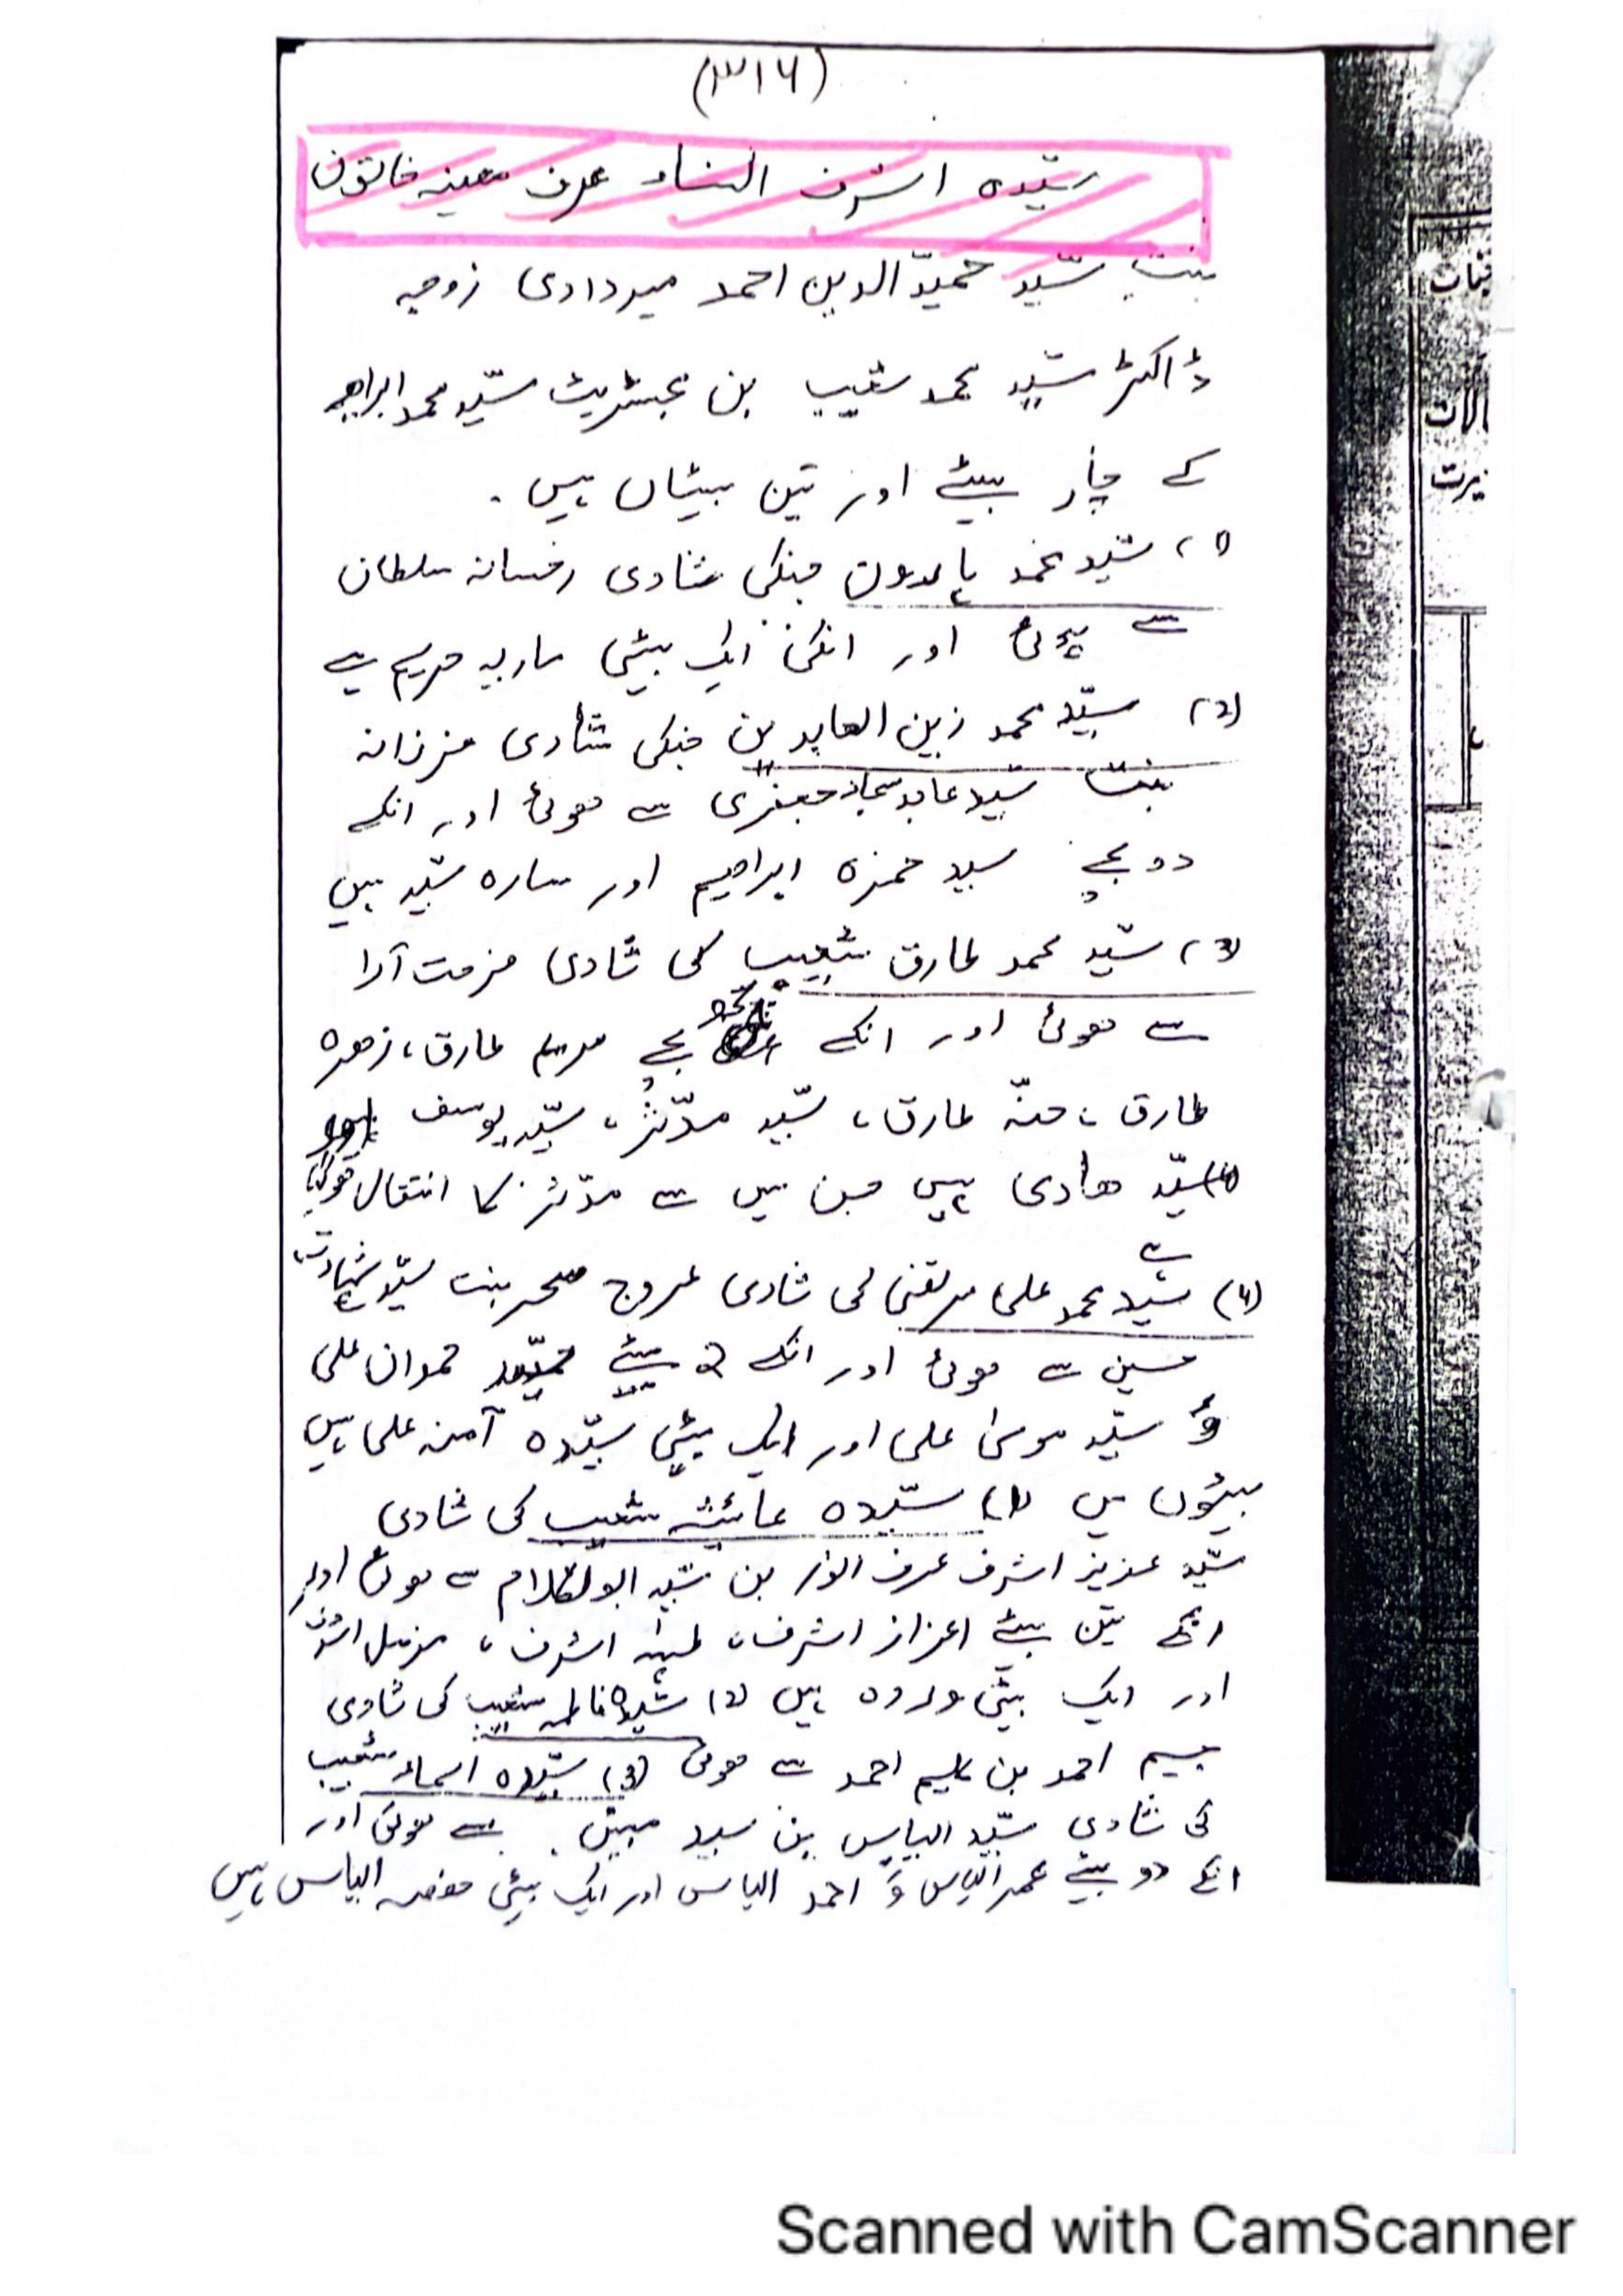 (۳۱۶)
سیّدہ اشرف النساء عرف معینہ خاتون
بنت سیّد حمیدّالدین احمد میردادی زوجہ
ڈاکٹر سیّد محمد شعیب بن مجسٹریٹ سیّد محمد ابراہیم
کے چار بیٹے اور تین بیٹیاں ہیں .
(1) سیّد محمد ہارون جنکی شادی رخسانہ سلطان
سے ہوئی اور انکی ایک بیٹی ماریہ مریم ہے
(2) سیّد محمد زین العابدین جنکی شادی فرزانہ
بنت سیّد عابد سجاد جعفری سے ہوئی اور انکے
دو بچے سید حمزہ ابراھیم اور سارہ سیّد ہیں
(3) سیّد محمد طارق شعیب کی شادی فرحت آرا
سے ھوئی اور انکے چھ بچے مریم طارق، زھرہ
طارق، منّہ طارق، سیّد مدّثر، سیّد یوسف اور
سیّد ھادی ہیں جن میں سے مدّثر کا انتقال ھوگیا
ہے
(4) سیّد محمد علی مرتضی کی شادی عروج سحر بنت سیّد شہادت
حسین سے ھوئی اور انکے 2 بیٹے سیّد حموان علی
وَ سیّد موسیٰ علی اور ایک بیٹی سیّدہ آمنہ علی ہیں
بیٹیوں میں (1) سیّدہ عائشہ شعیب کی شادی
سیّد عزیز اشرف عرف انور بن سیّد ابوالکلام سے ھوئی اور
انکے تین بیٹے اعزاز اشرف، طہٰ اشرف، مزمل اشرف
اور ایک بیٹی وردہ ہیں (2) سیّدہ فاطمہ شعیب کی شادی
احمد بن احمد سے ھوئی (3) سیّدہ اسماء شعیب
کی شادی سیّد الیاس بن سید مبین سے ھوئی اور
انکے دو بیٹے عمر الیاس وَ احمد الیاس اور ایک بیٹی حفصہ الیاس ہیں
الات
یرت
Scanned with CamScanner